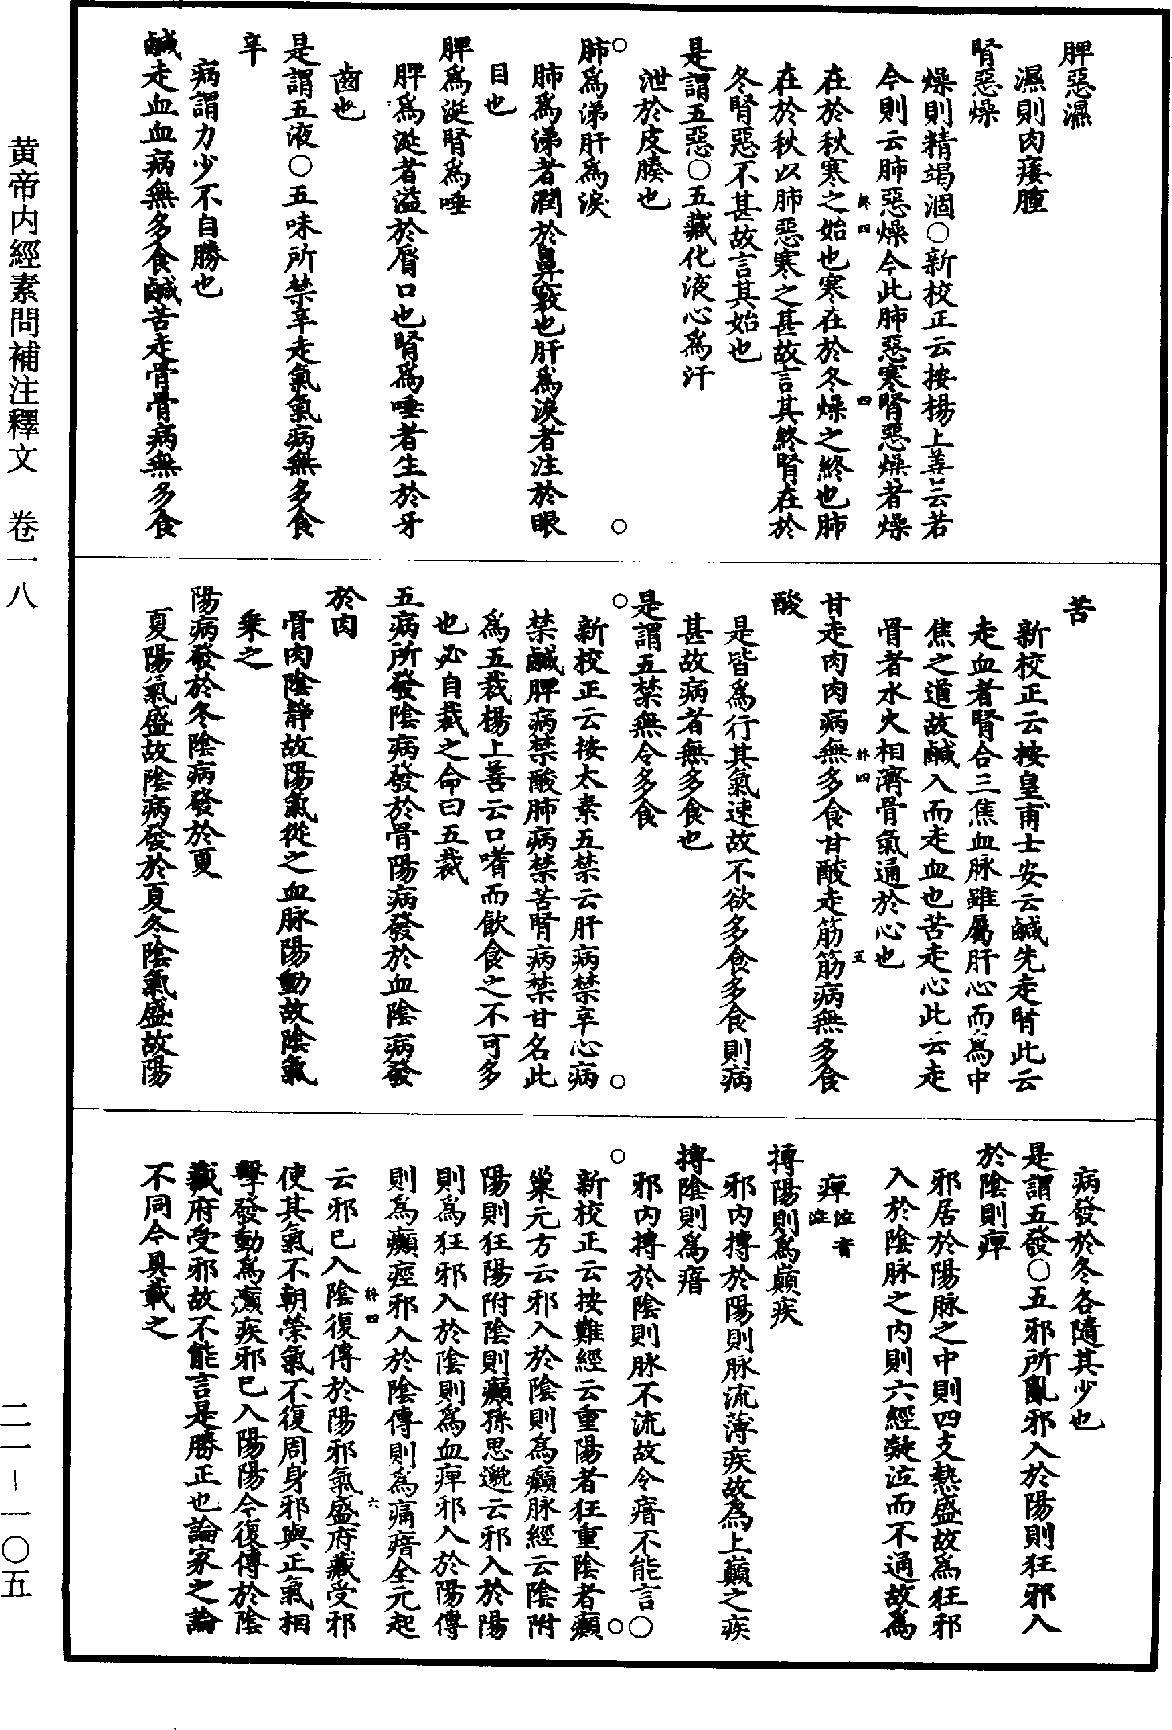 脾惡濕
濕則肉痿腫
腎惡燥
燥則精竭涸○新校正云按楊上善云若
今則云肺惡燥今此肺惡寒腎惡燥者燥
在於秋寒之始也寒在於冬燥之終也肺
在於秋以肺惡寒之甚故言其終腎在於
冬腎惡不甚故言其始也
是謂五惡○五藏化液心爲汗
泄於皮腠也
肺爲涕肝爲淚
肺爲涕者潤於鼻竅也肝爲淚者注於眼
目也
脾爲涎腎爲唾
脾爲涎者溢於脣口也腎爲唾者生於牙
齒也
是謂五液○五味所禁辛走氣氣病無多食
辛
病謂力少不自勝也
鹹走血血病無多食鹹苦走骨骨病無多食
苦
新校正云按皇甫士安云鹹先走腎此云
走血者腎合三焦血脉雖屬肝心而爲中
焦之道故鹹入而走血也苦走心此云走
骨者水火相濟骨氣通於心也
甘走肉肉病無多食甘酸走筋筋病無多食
酸
是皆爲行其氣速故不欲多食多食則病
甚故病者無多食也
是謂五禁無令多食
新校正云按太素五禁云肝病禁辛心病
禁鹹脾病禁酸肺病禁苦腎病禁甘名此
爲五裁楊上善云口嗜而飲食之不可多
也必自裁之命曰五裁
五病所發陰病發於骨陽病發於血陰病發
於肉
骨肉陰靜故陽氣從之血脉陽動故陰氣
乘之
陽病發於冬陰病發於夏
夏陽氣盛故陰病發於夏冬陰氣盛故陽
病發於冬各隨其少也
是謂五發○五邪所亂邪入於陽則狂邪入
於陰則痺
邪居於陽脉之中則四支熱盛故爲狂邪
入於陰脉之內則六經凝泣而不通故爲
痺泣音澁
搏陽則爲巔疾
邪內搏於陽則脉流薄疾故爲上巔之疾
搏陰則爲瘖
邪內搏於陰則脉不流故令瘖不能言○
新校正云按難經云重陽者狂重陰者癲
巢元方云邪入於陰則爲癲脉經云陰附
陽則狂陽附陰則癲孫思邈云邪入於陽
則爲狂邪入於陰則爲血痺邪入於陽傳
則爲癲痙邪入於陰傳則爲痛瘖全元起
云邪已入陰復傳於陽邪氣盛府藏受邪
使其氣不朝榮氣不復周身邪與正氣相
擊發動爲癲疾邪已入陽陽今復傳於陰
藏府受邪故不能言是勝正也論家之論
不同今具載之
黄帝内經素問補注釋文　卷一八
二一－一〇五